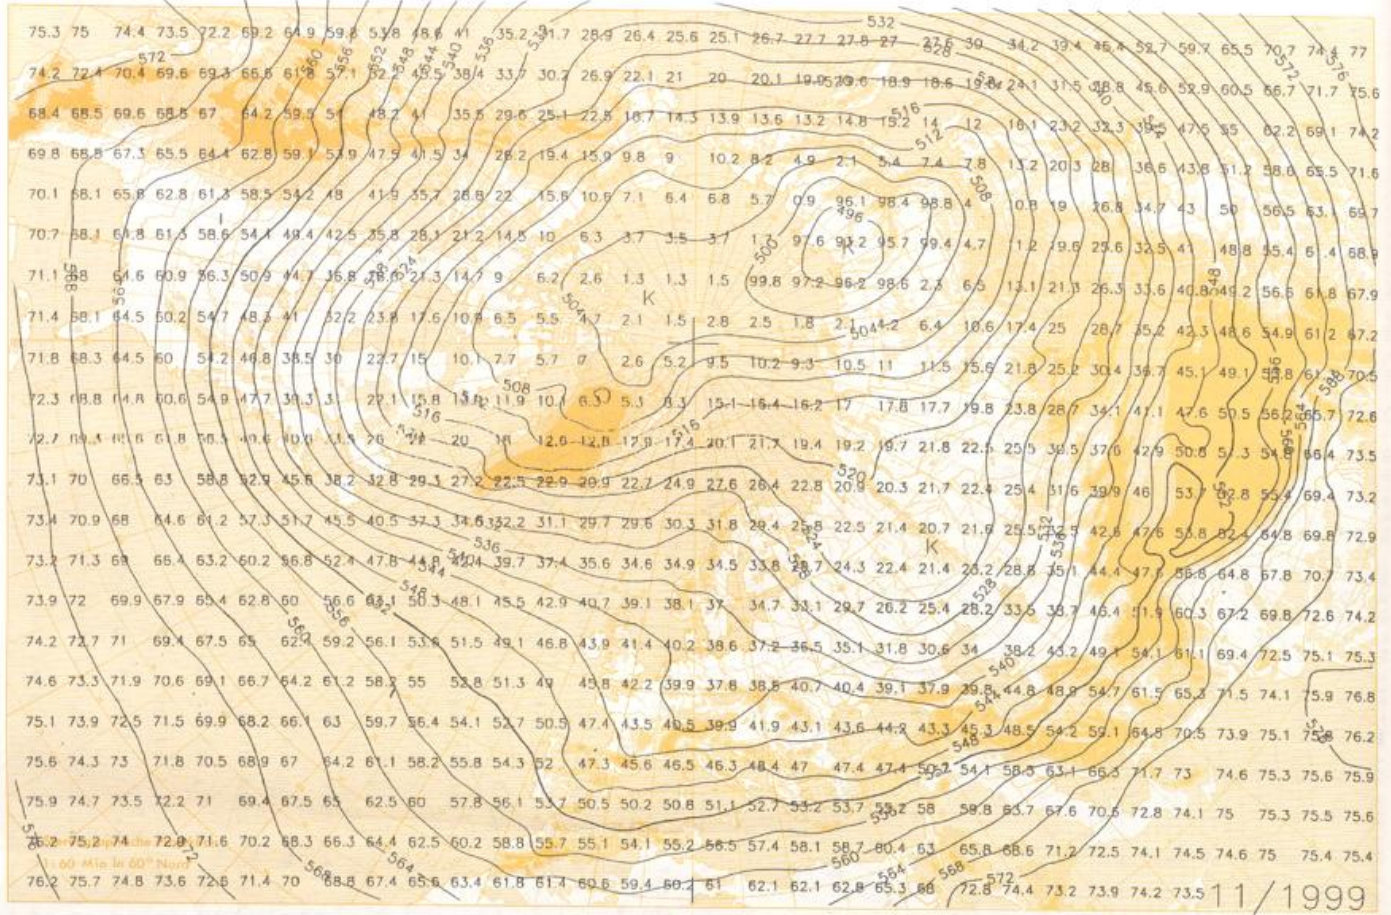 532
75.3 75 74.4 73.5 72.2 69.2 64.9 59.8 53.8 48.6 41 35.2 31.7 28.9 26.4 25.6 25.1 26.7 27.7 27.8 27 27.6 30 34.2 39.4 45.4 52.7 59.7 65.5 70.7 74.4 77
572 560 556 552 548 544 540 536 528 572 576
74.2 72.4 70.4 69.6 69.3 66.6 61.8 57.1 52.2 45.5 38.4 33.7 30.2 26.9 22.1 21 20 20.1 19.9 18.9 18.6 24.1 31.5 38.8 45.6 52.9 60.5 66.7 71.7 75.6
516
68.4 68.5 69.6 68.8 67 64.2 59.5 54 48.2 41 35.5 29.6 25.1 22.5 18.7 14.3 13.9 13.6 13.2 14.8 15.2 14 12 16.1 23.2 32.3 39.5 47.5 55 62.2 69.1 74.2
512
69.8 68.8 67.3 65.5 64.4 62.8 59.1 53.9 47.5 41.5 34 26.2 19.4 15.9 9.8 9 10.2 8.2 4.9 2.1 5.4 7.4 7.8 13.2 20.3 28 36.6 43.8 51.2 58.6 65.5 71.6
508
70.1 68.1 65.8 62.8 61.3 58.5 54.2 48 41.9 35.7 28.8 22 15.6 10.6 7.1 6.4 6.8 5.7 0.9 96.1 98.4 98.8 4 10.8 19 26.8 34.7 43 50 56.5 63.1 69.7
496
70.7 68.1 64.8 61.3 58.6 54.1 49.4 42.5 35.8 28.1 21.2 14.5 10 6.3 3.7 3.5 3.7 97.6 93.2 95.7 99.4 4.7 11.2 19.6 25.6 32.5 41 48.8 55.4 61.4 68.9
500
71.1 68 64.6 60.9 56.3 50.9 44.7 36.8 21.3 14.7 9 6.2 2.6 1.3 1.3 1.5 99.8 97.2 96.2 98.6 2.3 6.5 13.1 21.3 26.3 33.6 40.8 49.2 56.6 61.8 67.9
568 524 548
K
504
71.4 68.1 64.5 60.2 54.7 48.3 41 32.2 23.8 17.6 10.9 6.5 5.5 4.7 2.1 1.5 2.8 2.5 1.8 2.1 4.2 6.4 10.6 17.4 25 28.7 35.2 42.3 48.6 54.9 61.2 67.2
504
71.8 68.3 64.5 60 54.2 46.8 38.5 30 22.7 15 10.1 7.7 5.7 7 2.6 5.2 9.5 10.2 9.3 10.5 11 11.5 15.6 21.8 25.2 30.4 36.7 45.1 49.1 70.5
508 556 568
72.3 68.8 64.8 60.6 54.9 47.7 39.3 22.1 15.8 11.9 10.1 6.3 5.3 8.3 15.1 16.4 16.2 17 17.8 17.7 19.8 23.8 28.7 34.1 41.1 47.6 50.5 56.2 65.7 72.6
516 516 564
72.7 61.8 20 18 12.6 12.8 12.9 17.4 20.1 21.7 19.4 19.2 19.7 21.8 22.5 25.5 30.5 37.6 42.9 50.8 51.3 66.4 73.5
520
73.1 70 66.5 63 58.8 52.9 45.6 38.2 32.8 29.3 27.2 22.5 22.9 20.9 22.7 24.9 27.6 26.4 22.8 20.9 20.3 21.7 22.4 25.4 31.6 39.9 46 53.7 52.8 55.4 69.4 73.2
73.4 70.9 68 64.6 61.2 57.3 51.7 45.5 40.5 37.3 34.6 32.2 31.1 29.7 29.6 30.3 31.8 29.4 25.8 22.5 21.4 20.7 21.6 25.5 42.6 47.6 53.8 52.4 64.8 69.8 72.9
524 532
536 K 536
73.2 71.3 69 66.4 63.2 60.2 56.8 52.4 47.8 44.8 42.4 39.7 37.4 35.6 34.6 34.9 34.5 33.8 28.7 24.3 22.4 21.4 23.2 28.8 35.1 44.4 47.6 56.8 64.8 67.8 70.7 73.4
540 544 528 548
73.9 72 69.9 67.9 65.4 62.8 60 56.6 53.1 50.3 48.1 45.5 42.9 40.7 39.1 38.1 37 34.7 33.1 29.7 26.2 25.4 28.2 33.5 38.7 46.4 51.9 60.3 67.2 69.8 72.6 74.2
552 528
556
560
74.2 72.7 71 69.4 67.5 65 62.4 59.2 56.1 53.6 51.5 49.1 46.8 43.9 41.4 40.2 38.6 37.2 36.5 35.1 31.8 30.6 34 38.2 43.2 49.1 54.1 61.1 69.4 72.5 75.1 75.3
540
74.6 73.3 71.9 70.6 69.1 66.7 64.2 61.2 58.2 55 52.8 51.3 49 45.8 42.2 39.9 37.8 38.8 40.7 40.4 39.1 37.9 39.8 44.8 48.9 54.7 61.5 65.3 71.5 74.1 75.9 76.8
544
75.1 73.9 72.5 71.5 69.9 68.2 66.1 63 59.7 56.4 54.1 52.7 50.5 47.4 43.5 40.5 39.9 41.9 43.1 43.6 44.2 43.3 45.3 48.5 54.2 59.1 64.8 70.5 73.9 75.1 75.8 76.2
548 576
75.6 74.3 73 71.8 70.5 68.9 67 64.2 61.1 58.2 55.8 54.3 52 47.3 45.6 46.5 46.3 48.4 47 47.4 47.4 50.2 54.1 58.3 63.1 66.3 71.7 73 74.6 75.3 75.6 75.9
552
75.9 74.7 73.5 72.2 71 69.4 67.5 65 62.5 60 57.8 56.1 53.7 50.5 50.2 50.8 51.1 52.7 53.2 53.7 55.2 58 59.8 63.7 67.6 70.5 72.8 74.1 75 75.3 75.5 75.6
556
76.2 75.2 74 72.9 71.6 70.2 68.3 66.3 64.4 62.5 60.2 58.8 55.7 55.1 54.1 55.2 56.5 57.4 58.1 58.7 60.4 63 65.8 68.6 71.2 72.5 74.1 74.5 74.6 75 75.4 75.4
1:60 Mio in 60° Nord
568 564 560 564 568 572
76.2 75.7 74.8 73.6 72.6 71.4 70 68.8 67.4 65.6 63.4 61.8 61.4 60.6 59.4 60.2 61 62.1 62.1 62.8 65.3 68 72.8 74.4 73.2 73.9 74.2 73.5
11/1999